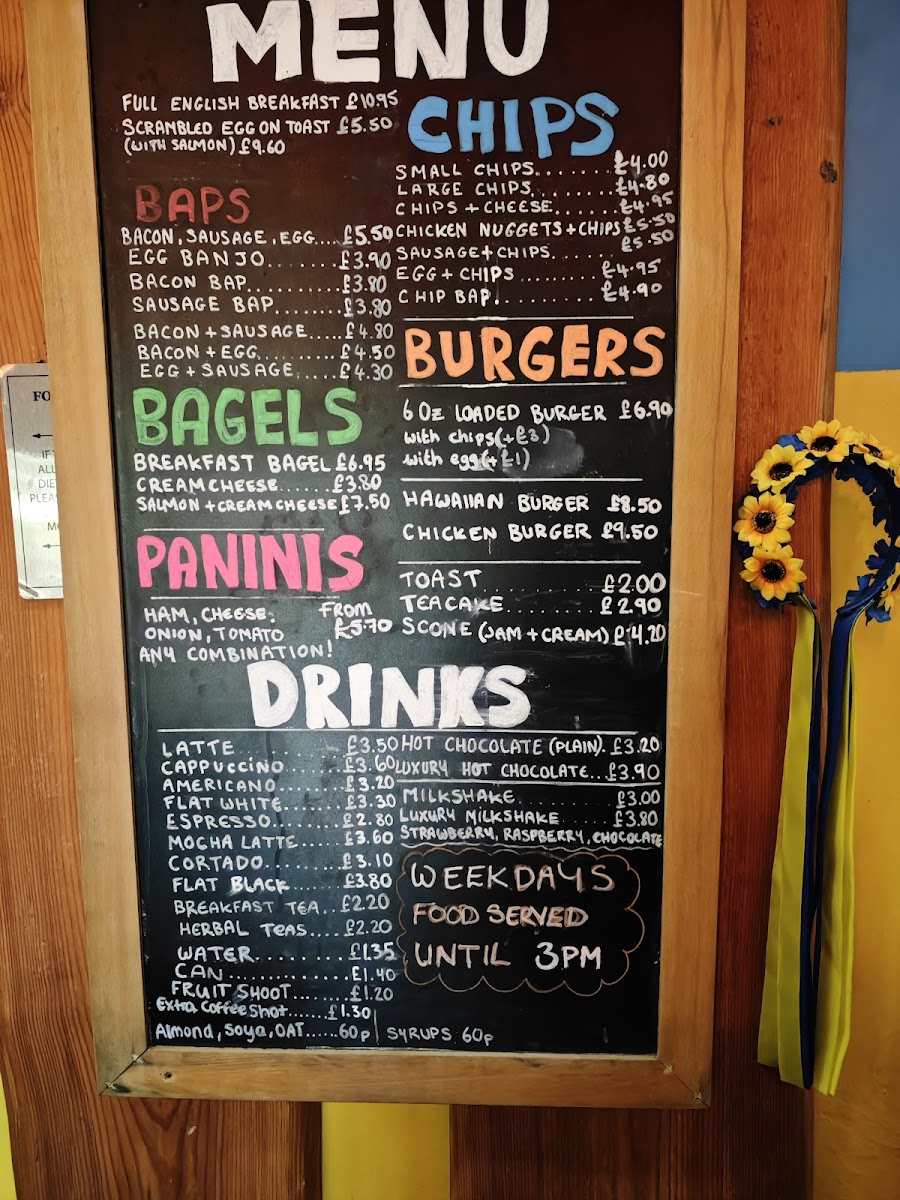 MENU
FULL ENGLISH BREAKFAST £10.95
SCRAMBLED EGG ON TOAST £5.50
(WITH SALMON) £9.60
BAPS
BACON, SAUSAGE, EGG.... £5.50
EGG BANJO....... £3.90
BACON BAP....... £3.80
SAUSAGE BAP..... £3.80
BACON + SAUSAGE..... £4.80
BACON + EGG....... £4.50
EGG + SAUSAGE..... £4.30
BAGELS
BREAKFAST BAGEL £6.95
CREAM CHEESE....... £3.80
SALMON + CREAM CHEESE £7.50
PANINIS
HAM, CHEESE, FROM
ONION, TOMATO £5.70
ANY COMBINATION!
CHIPS
SMALL CHIPS....... £4.00
LARGE CHIPS....... £4.80
CHIPS + CHEESE....... £4.95
CHICKEN NUGGETS + CHIPS £5.50
SAUSAGE + CHIPS..... £5.50
EGG + CHIPS ....... £4.95
CHIP BAP.......... £4.90
BURGERS
6 Oz LOADED BURGER £6.90
with chips (+£3)
with egg (+£1)
HAWAIIAN BURGER £8.50
CHICKEN BURGER £9.50
TOAST ......... £2.00
TEACAKE......... £2.90
SCONE (JAM + CREAM) £4.20
DRINKS
LATTE ....... £3.50
CAPPUCCINO...... £3.60
AMERICANO....... £3.20
FLAT WHITE....... £3.30
ESPRESSO....... £2.80
MOCHA LATTE..... £3.60
CORTADO......... £3.10
FLAT BLACK...... £3.80
BREAKFAST TEA... £2.20
HERBAL TEAS.... £2.20
WATER......... £1.35
CAN............ £1.40
FRUIT SHOOT....... £1.20
Extra Coffee Shot...... £1.30
Almond, Soya, OAT......60p | SYRUPS 60p
HOT CHOCOLATE (PLAIN). £3.20
LUXURY HOT CHOCOLATE... £3.90
MILKSHAKE......... £3.00
LUXURY MILKSHAKE..... £3.80
STRAWBERRY, RASPBERRY, CHOCOLATE
WEEKDAYS
FOOD SERVED
UNTIL 3PM
FO
IF
ALL
DIE
PLEAS
MO